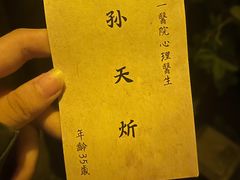 一醫院心理醫生
孙天炘
年齡35歲